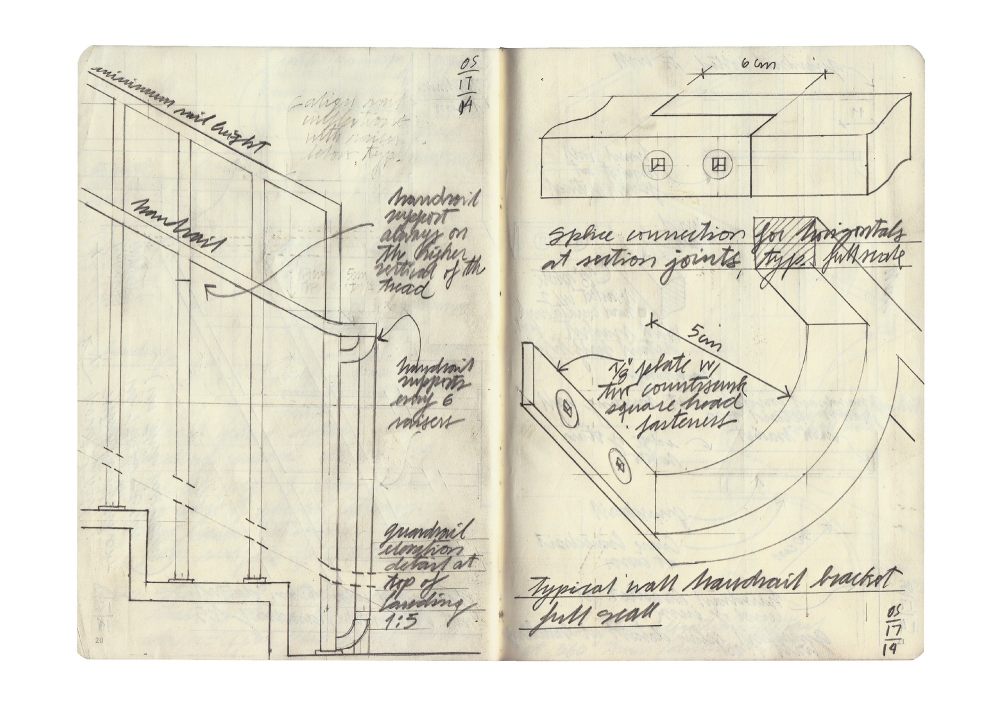 minimum rail height
handrail
05
17
14
handrail
support
always on
the higher
vertical of th
tread
handrail
supports
every 6
raisers
guardrail
elevation
detail at
top of
landing
1:5
20
6 cm
splice connection for horizontals
at section joints, typ. full scale
5 cm
plate w/
two countersunk
square head
fasteners
typical wall handrail bracket
full scale
05
17
14